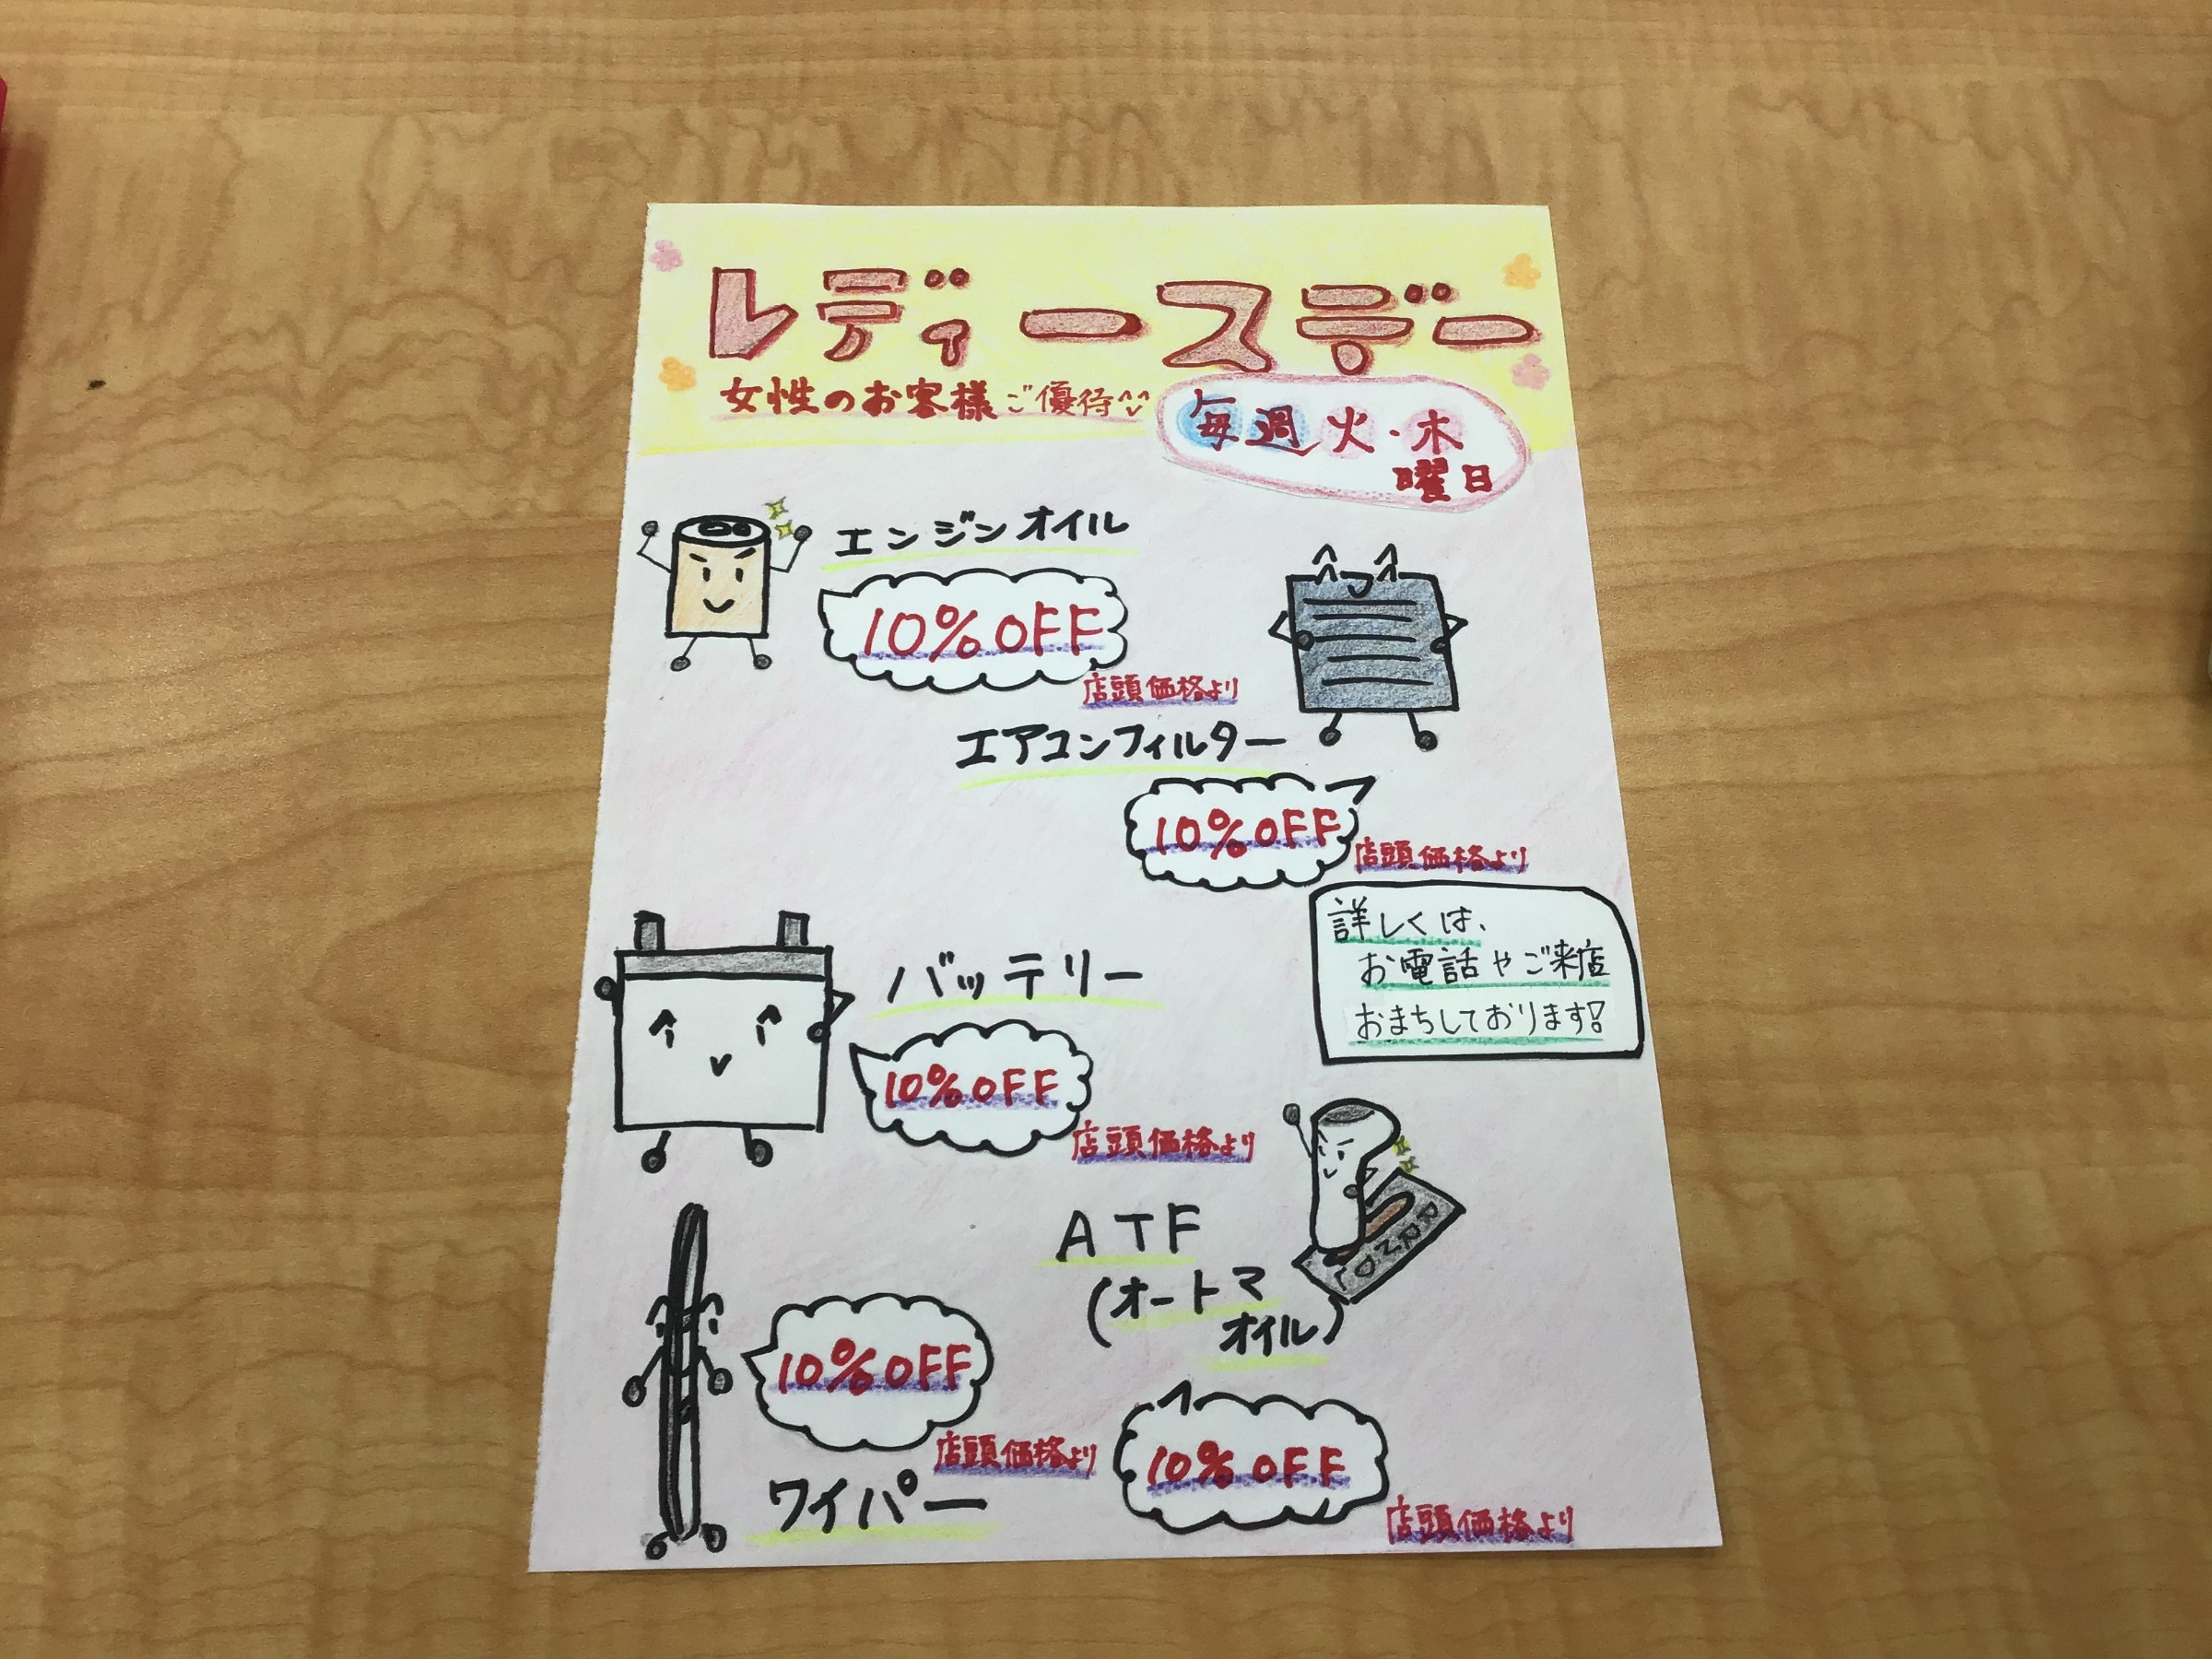 レディースデー
女性のお客様ご優待
毎週火・木
曜日
エンジンオイル
10%OFF
店頭価格より
エアコンフィルター
10%OFF
店頭価格より
詳しくは、
お電話やご来店
おまちしております!
バッテリー
10%OFF
店頭価格より
ATF
(オートマ
オイル)
10%OFF
店頭価格より
10%OFF
店頭価格より
ワイパー